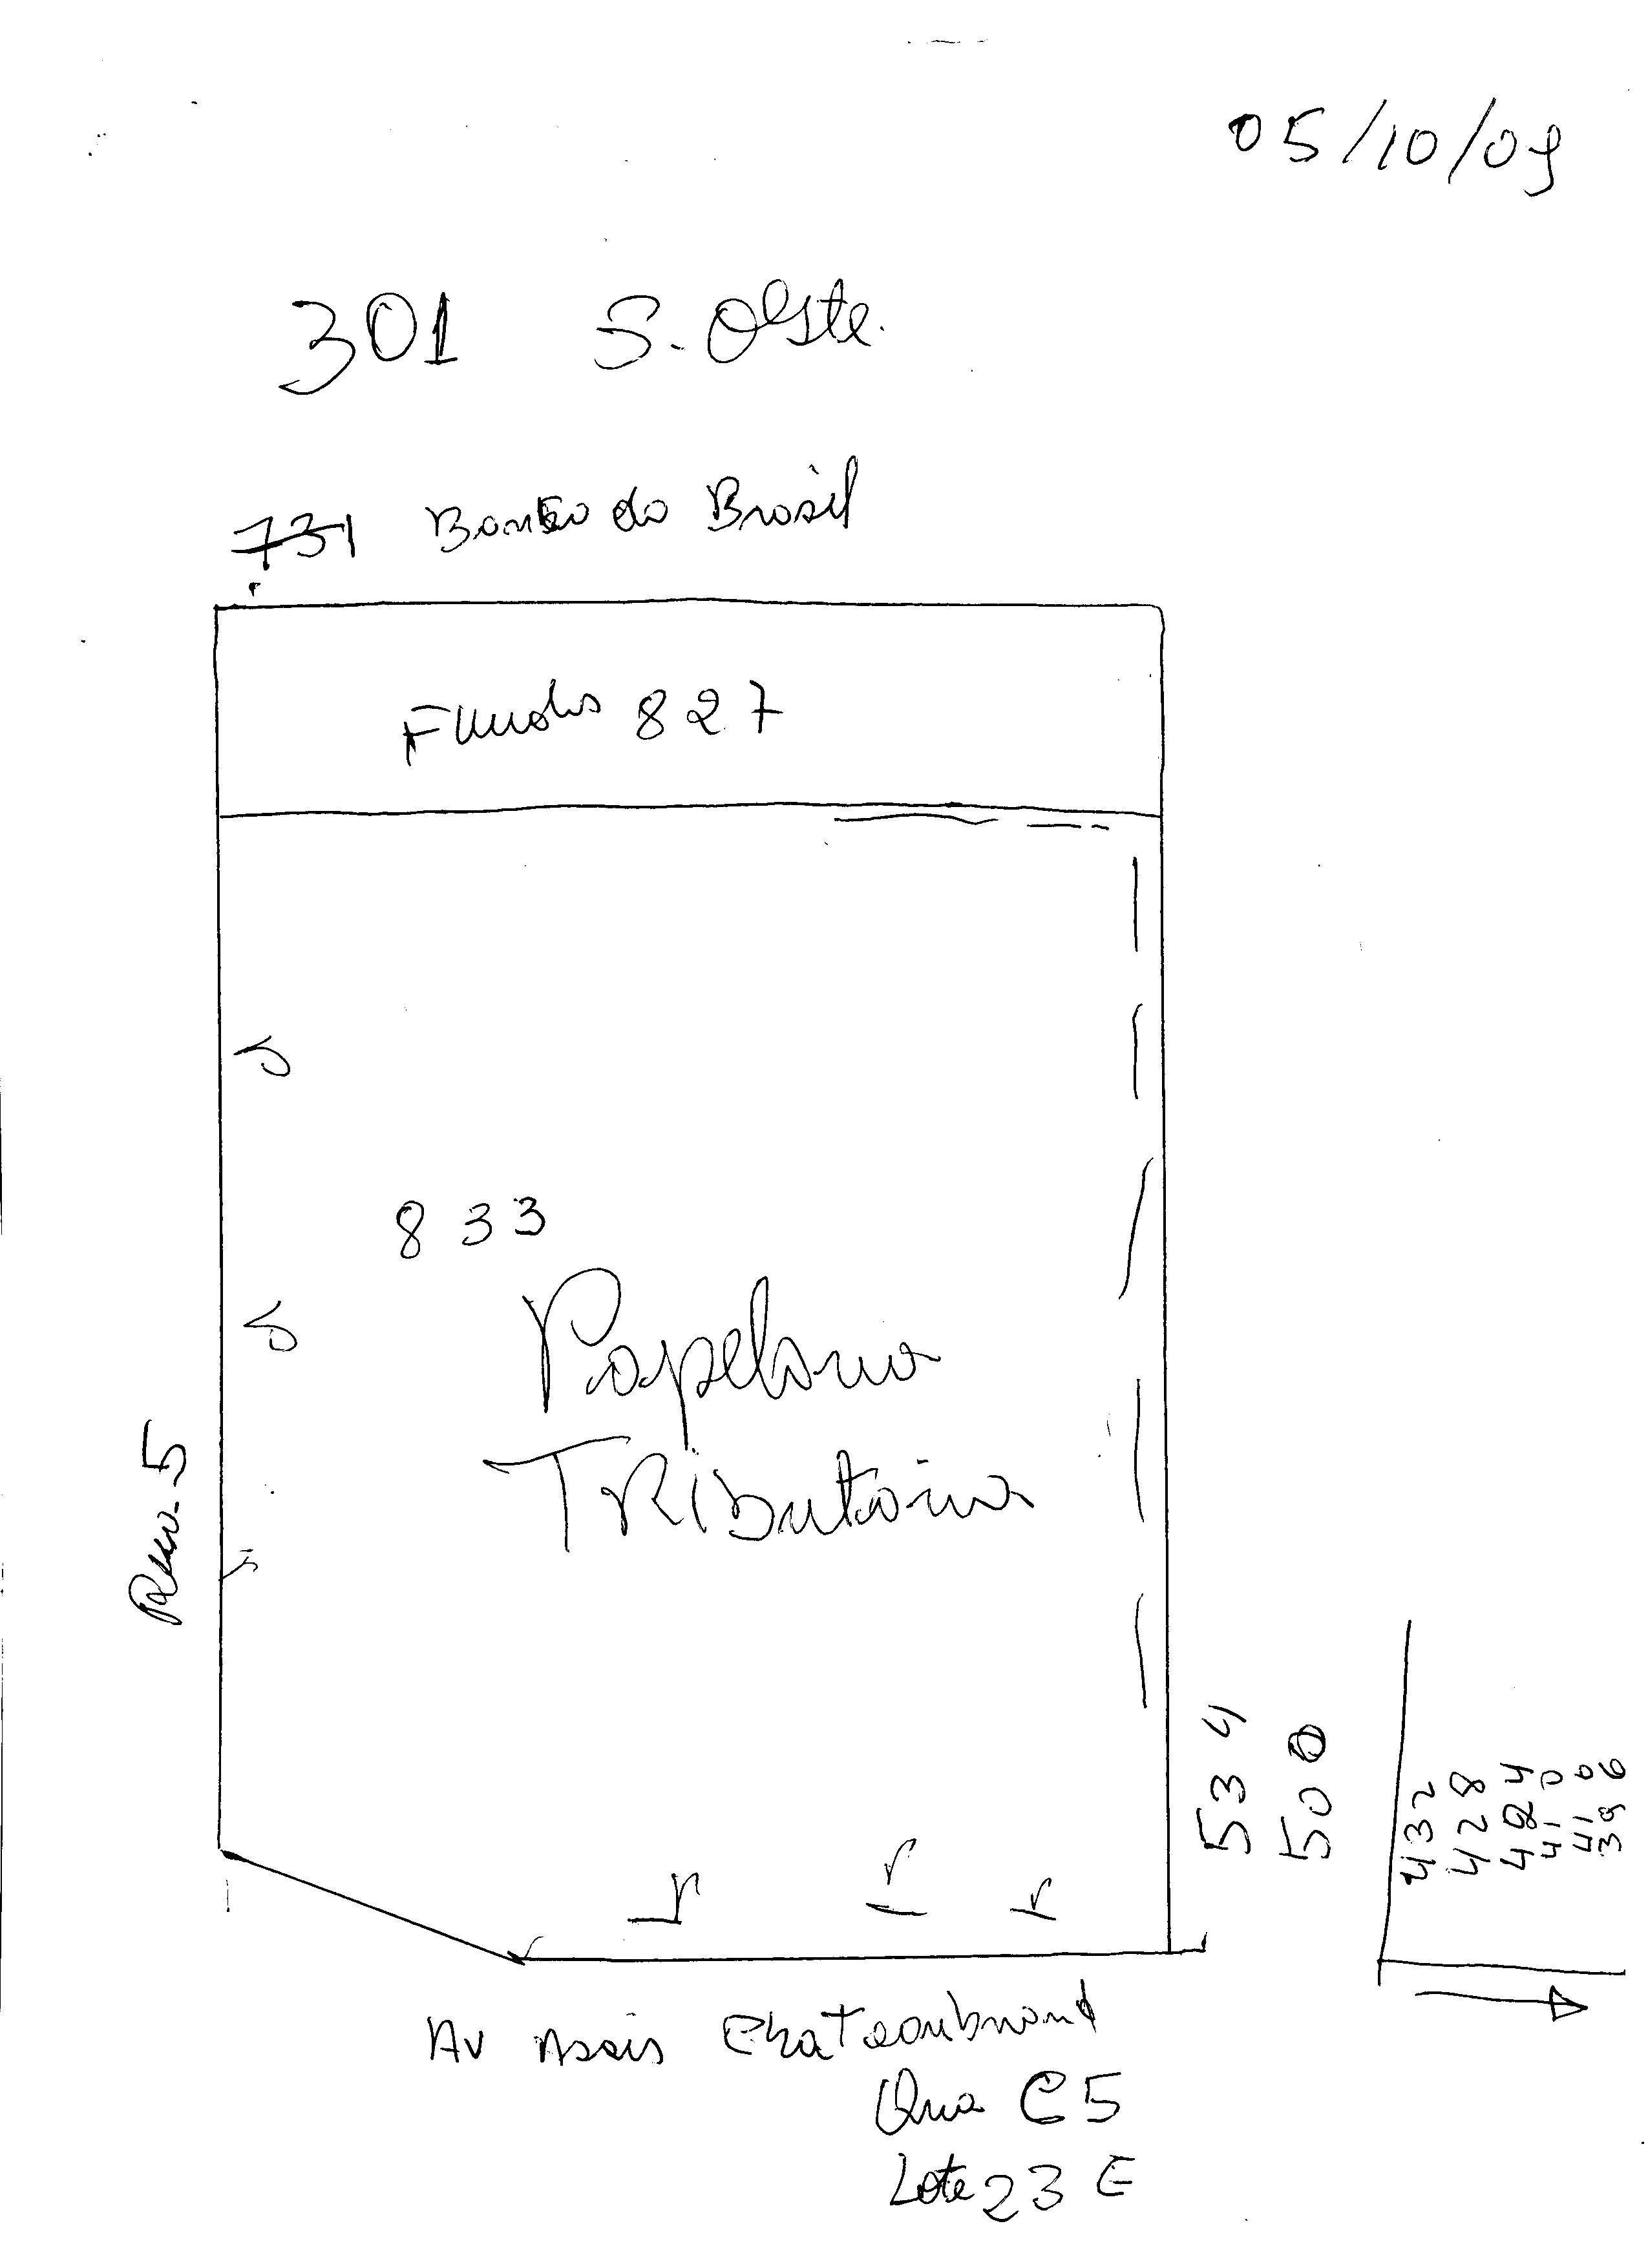 05/10/09
301 S. Oeste.
731 Banco do Brasil
Fundos 827
833
Papelaria
Tributária
5
534
500
432
428
424
410
410
396
Av Assis Chateaubriand
Qua C5
Lote 23 E